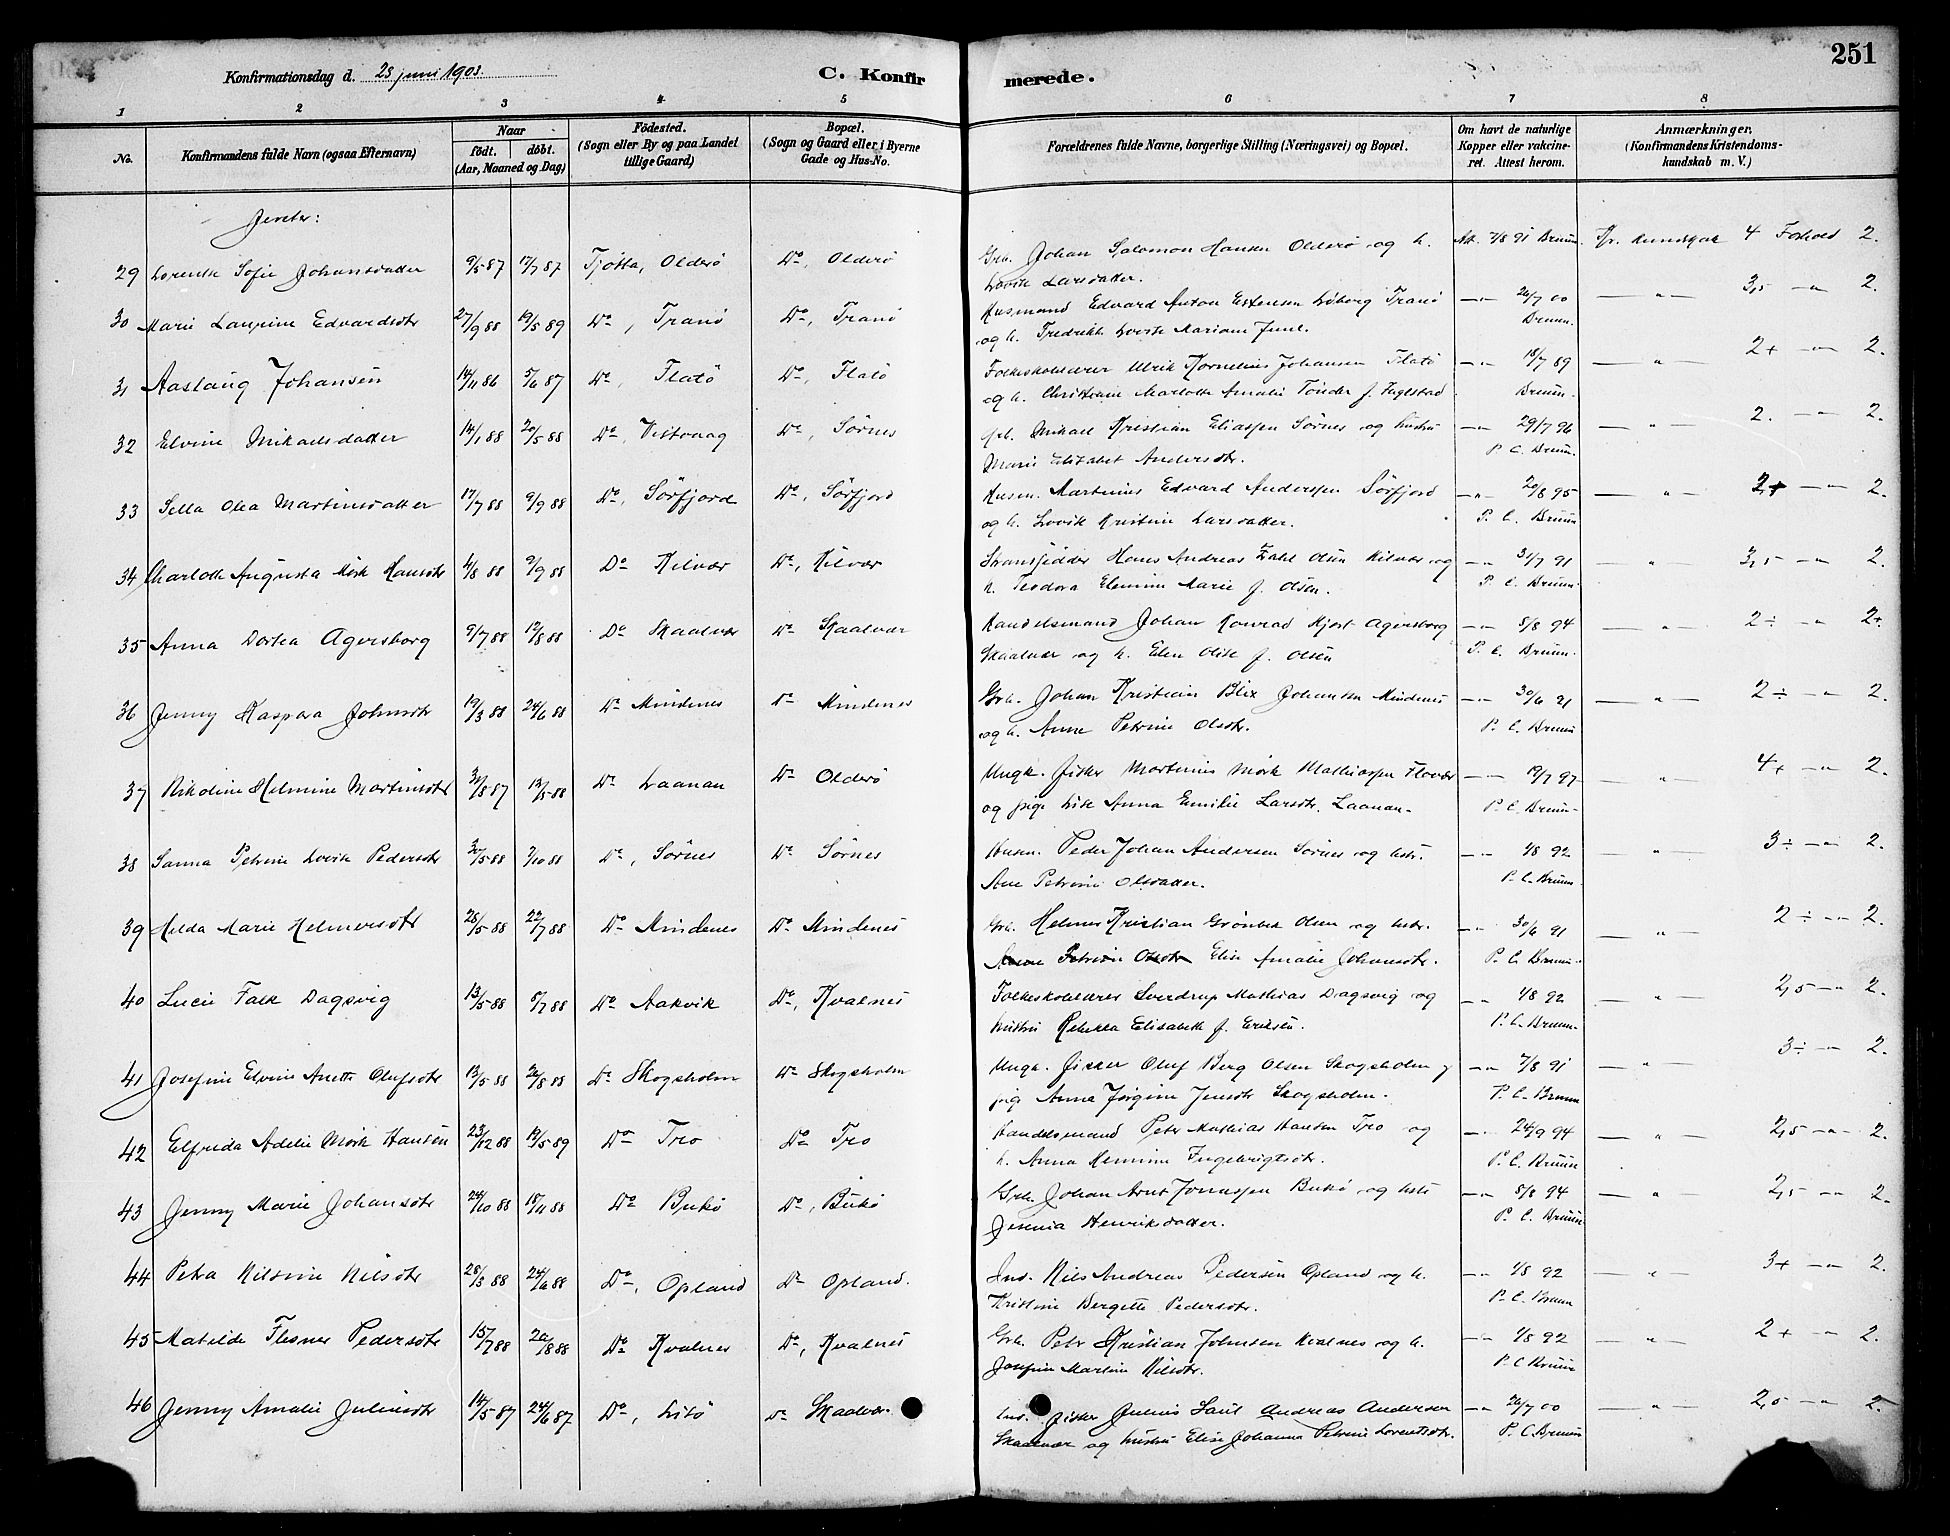 251
Konfirmationsdag d. 28 juni 1903.
C. Konfirmerede.
1 2 3 4 5 6 7 8
No.
Konfirmandens fulde Navn (ogsaa Efternavn)
Naar
födt. döbt.
(Aar, Maaned og Dag)
Födested.
(Sogn eller By og paa Landet
tillige Gaard)
Bopæl.
(Sogn og Gaard eller i Byerne
Gade og Hus-No.
Forældrenes fulde Navne, borgerlige Stilling (Næringsvei) og Bopæl.
Om havt de naturlige
Kopper eller vakcine-
ret. Attest herom.
Anmærkninger.
(Konfirmandens Kristendoms-
kundskab m. V.)
Jenter:
29 Lorentse Sofie Johansdatter 9/5 87 17/7 87 Tjøtta, Olderö Do, Olderö Grb. Johan Salomon Hansen Olderö og h. Att. 7/8 91 Bruun. Kr. kundskab 4 Forhold 2.
Lovise Larsdatter.
30 Marie Laurine Edvardsdtr 27/9 88 19/5 89 Do, Tranö Do, Tranö Husmand Edvard Anton Estensen Tranö 26/7 00 3,5 2.
og h. Fredrikke Lovise Mariane Bruun.
31 Aaslaug Johansen 14/11 86 5/6 87 Do, Flatö Do, Flatö Folkeskolelærer Ulrik Kornelius Johansen Flatö 18/7 89 2+ 2.
og h. Christiane Marlotte Amalie Tönder f. Fuglstad Bruun.
32 Elvine Mikaelsdatter 14/1 88 20/5 88 Do, Vistvaag Do, Sörnes Grb. Mikael Kristian Eliassen Sörnes og hustru 29/7 96 2. 2.
Marie Elisabet Andersdtr. P. C. Bruun.
33 Sella Olea Martinsdatter 17/7 88 9/9 88 Do, Sörfjord Do, Sörfjord Husm. Martinus Edvard Andersen Sörfjord 20/8 95 2+ 2.
og h. Lovise Kristine Larsdatter. P. C. Bruun
34 Charlotte Augusta Mörk Hansdtr 4/8 88 9/9 88 Do Kilvær Do, Kilvær Strandsidder Hans Andreas Olsen Kilvær og 31/7 91 3,5 2.
h. Teodora Elenine Marie f. Olsen. P. C. Bruun.
35 Anna Dortea Agersborg 9/7 88 12/8 88 Do Skaalvær Do Skaalvær Handelsmand Johan Konrad Hjort Agersborg 8/8 94 2÷ 2+
Skaalvær og h. Elen Olise f. Olsen P. C. Bruun.
36 Jenny Kaspara Johansdtr 19/3 88 24/6 88 Do Mindenes Do Mindenes Grb. Johan Kristian Blix Johansen Mindenes 30/6 91 2÷ 2.
og h. Anne Petrine Olsdtr. P. C. Bruun
37 Nikoline Helmine Martinsdtr 30/8 87 13/5 88 Do Laanan Do Olderö Ungk. fisker Martinus Mörk Mathiassen Flovær 19/7 97 4+ 2.
og pige Lise Anna Emilie Larsdtr. Laanan. P. C. Bruun.
38 Sanna Petrine Lovise Pedersdtr 30/5 88 7/10 88 Do, Sörnes Do Sörnes Husm. Peder Johan Andersen Sörnes og hstr. 1/8 92 3÷ 2.
Ane Petrine Olsdatter. P. C. Bruun.
39 Helda Marie Helmersdtr 28/5 88 22/7 88 Do Mindenes Do Mindenes Grb. Helmer Kristian Grönbek Olsen og hstr. 30/6 91 2÷ 2.
Anne Petrine Olsdtr Elise Amalie Johansdtr. P. C. Bruun.
40 Lucie Falk Dagsvig 13/5 88 8/7 88 Do Aakvik Do, Kvalnes Folkeskolelærer Sverdrup Mathias Dagsvig og 1/8 92 2,5 2.
hustru Rebekka Elisabeth f. Eriksen. P. C. Bruun.
41 Josefine Elvine Anette Olufsdtr 13/5 88 26/8 88 Do Skogsholm Do Skogsholm Ungk. fisker Oluf Berg Olsen Skogsholm og 7/8 91 3÷ 2.
pig Anna Jörgine Jensdtr Skogsholm. P. C. Bruun
42 Elfrida Adelie Mörk Hansen 23/12 88 19/5 89 Do Tro Do Tro Handelsmand Peter Mathias Hansen Tro og 24/9 94 2,5 2.
h. Anna Hennine Ingebrigtsdtr. P. C. Bruun
43 Jenny Marie Johansdtr 24/10 88 18/11 88 Do Bukö Do, Bukö Grb. Johan Arnt Jonassen Bukö og hstr 8/8 94 2,5 2.
Jesenia Henriksdatter. P. C. Bruun
44 Petra Nilsine Nilsdtr 28/3 88 24/6 88 Do, Opland Do Opland. Ins. Nils Andreas Pedersen Opland og h. 1/8 92 3+ 2.
Kristine Bergitte Pedersdtr. P. C. Bruun
45 Matilde Flesner Pedersdtr 15/7 88 20/8 88 Do Kvalnes Do, Kvalnes Grb. Peter Kristian Johnsen Kvalnes og h. 1/8 92 2+ 2.
Josefine Martine Nilsdtr. P. C. Bruun
46 Jenny Amalie Juliusdtr 14/5 87 24/6 87 Do, Litö Do Skaalvær. Ins. fisker Julius Saul Andreas Andersen 26/7 00 2,5 2.
Skaalvær og hustru Elise Johanna Petrine Lorentsdtr. P. C. Bruun